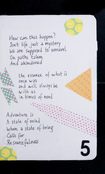 How can this happen?
Isn't life just a mystery
we are supposed to unravel,
On paths taken
And abandoned
the essence of what it
once was
and will always be
with us
in times of need
Adventure is
A state of mind
where a state of being
Calls for
Resourcefulness
5